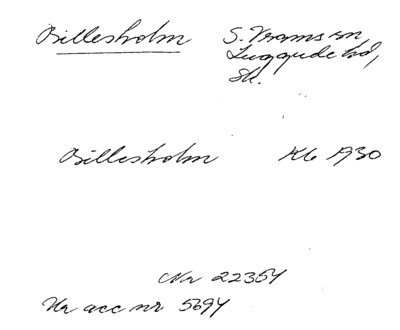 Billesholm S. Vrams sn,
Luggude hd,
Sk.
Billesholm Kb 1930
Nr 22354
Ur acc nr 5694